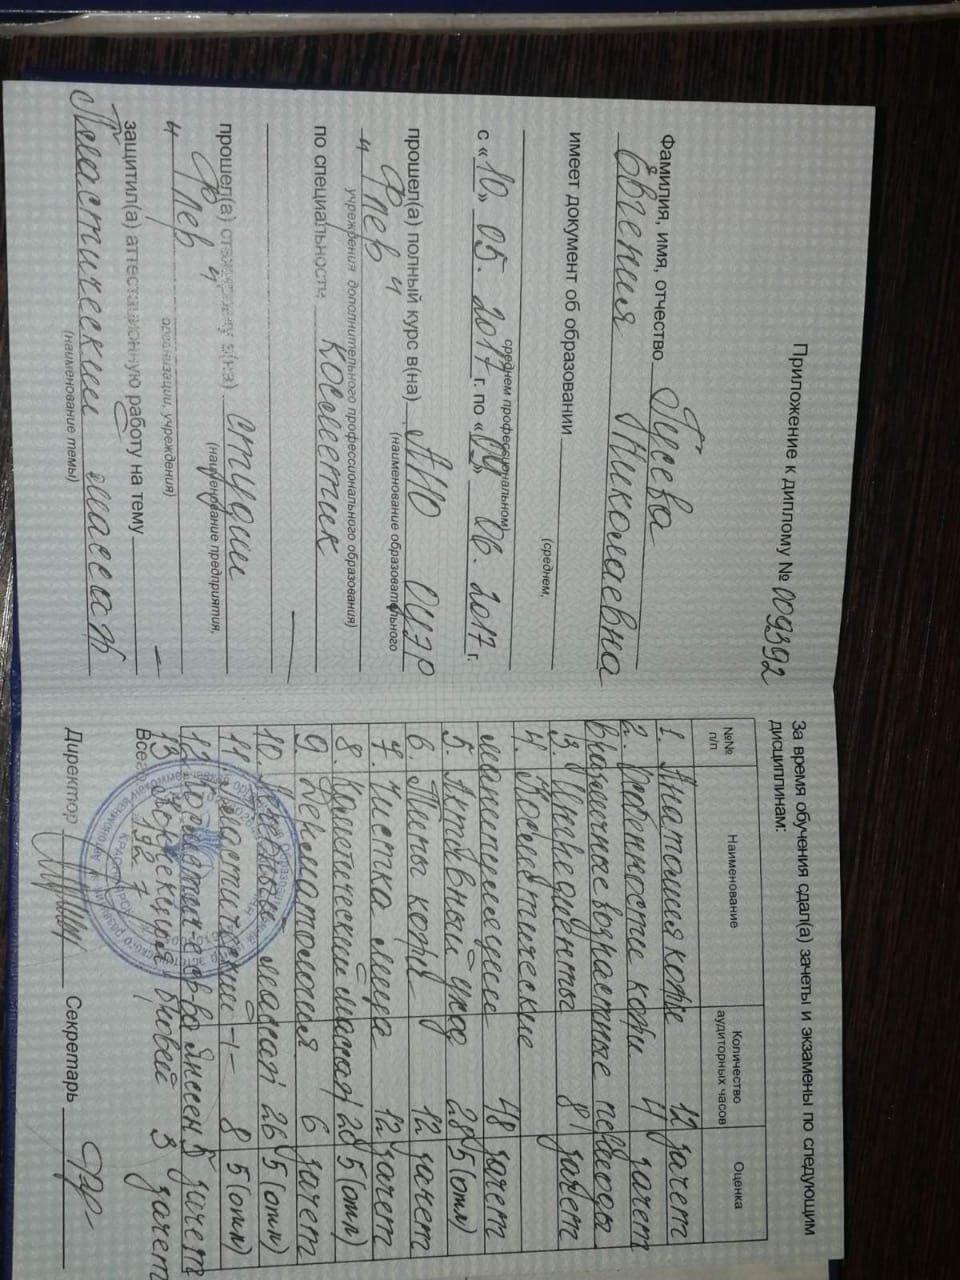 Приложение к диплому № 009392
Фамилия, имя, отчество Гусева
Евгения Николаевна
имеет документ об образовании
(среднем,
среднем профессиональном)
с «10» 05. 2017 г. по «09» 06. 2017 г.
прошел(а) полный курс в(на) АНО ОЦЭР
(наименование образовательного
учреждения дополнительного профессионального образования)
по специальности косметик
прошел(а) стажировку в(на) студии
(наименование предприятия,
организации, учреждения)
защитил(а) аттестационную работу на тему
Пластический массаж
(наименование темы)
За время обучения сдал(а) зачеты и экзамены по следующим
дисциплинам:
№№ п/п Наименование Количество аудиторных часов Оценка
1. Анатомия кожи 12 зачет
2. Особенности кожи 4 зачет
в различные возрастные периоды
3. Ингредиенты 8 зачет
4. Косметические
манипуляции 48 зачет
5. Активный уход 28 5 (отл)
6. Типы кожи 12 зачет
7. Чистка лица 12 зачет
8. Косметический массаж 20 5 (отл)
9. Дерматология 6 зачет
10. массаж 26 5 (отл)
11. Пластический -//- 8 5 (отл)
12. 5 зачет
13. Коррекция бровей 3 зачет
Всего 192
Директор Секретарь